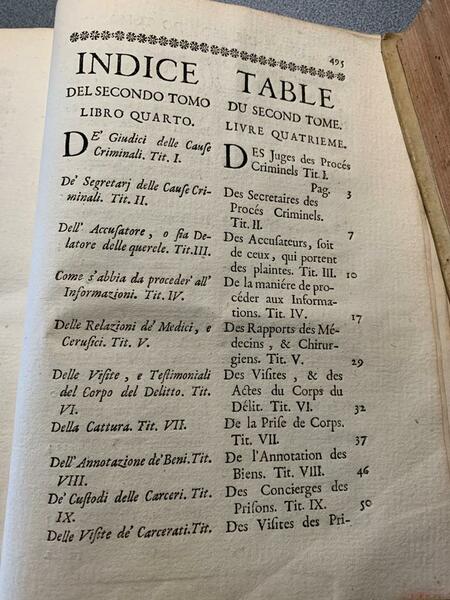 495
INDICE
DEL SECONDO TOMO
LIBRO QUARTO.
DE' Giudici delle Cause
Criminali. Tit. I.
De' Segretarj delle Cause Cri-
minali. Tit. II.
Dell' Accusatore, o sia De-
latore delle querele. Tit. III.
Come s'abbia da proceder' all'
Informazioni. Tit. IV.
Delle Relazioni de' Medici, e
Cerusici. Tit. V.
Delle Visite, e Testimoniali
del Corpo del Delitto. Tit.
VI.
Della Cattura. Tit. VII.
Dell' Annotazione de' Beni. Tit.
VIII.
De' Custodi delle Carceri. Tit.
IX.
Delle Visite de' Carcerati. Tit.
TABLE
DU SECOND TOME.
LIVRE QUATRIEME.
DES Juges des Procés
Criminels Tit. I.
Pag. 3
Des Secretaires des
Procés Criminels.
Tit. II. 7
Des Accusateurs, soit
de ceux, qui portent
des plaintes. Tit. III. 10
De la maniére de pro-
céder aux Informa-
tions. Tit. IV. 17
Des Rapports des Mé-
decins, & Chirur-
giens. Tit. V. 29
Des Visites, & des
Actes du Corps du
Délit. Tit. VI. 32
De la Prise de Corps.
Tit. VII. 37
De l'Annotation des
Biens. Tit. VIII. 46
Des Concierges des
Prisons. Tit. IX. 50
Des Visites des Pri-